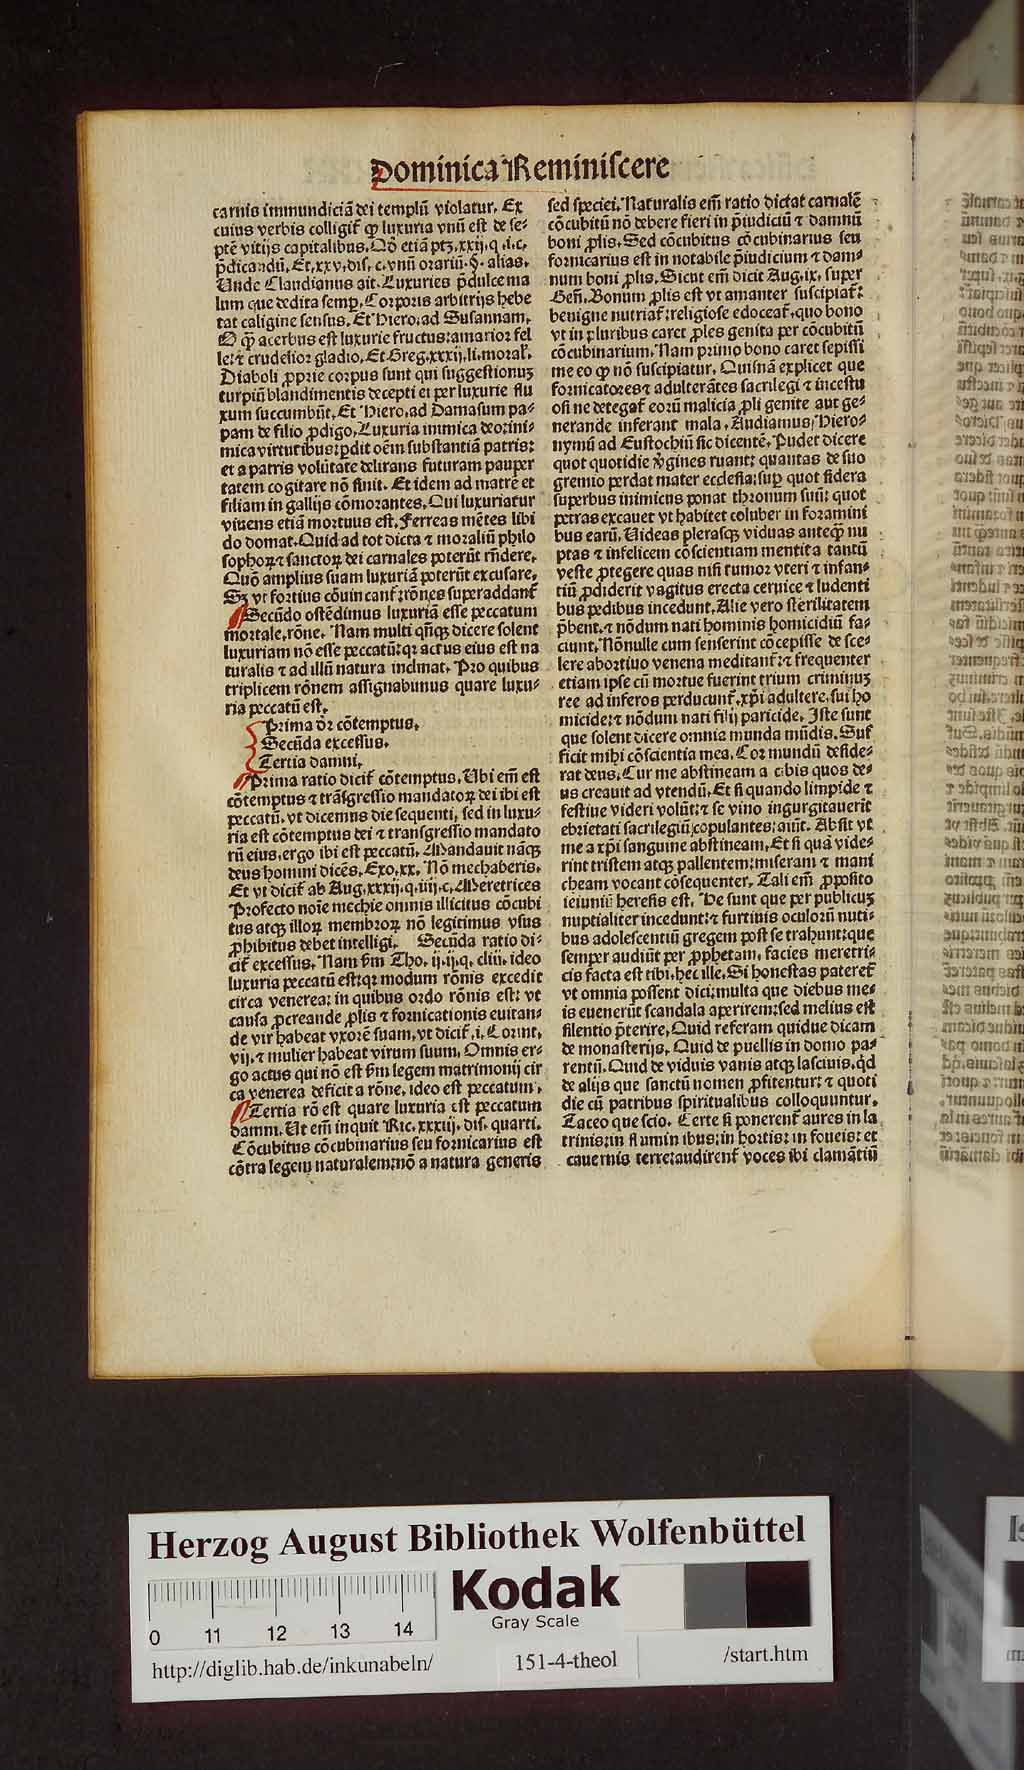 Dominica Reminiscere
carnis immundiciā dei templū violatur. Ex
cuius verbis colligit̄ ꝙ luxuria vnū est de se-
ptē vitijs capitalibus. Qō etiā ptꝫ. xxij. q. i. c.
p̄dicandū. Et. xxv. dis. c. vnū orariū. §. alias.
Unde Claudianus ait. Luxuries p̄dulce ma
lum que dedita semꝑ. Corporis arbitrijs hebe
tat caligine sensus. Et Hiero. ad Susannam.
O ꝙ̄ acerbus est luxurie fructus: amarior fel
le: ⁊ crudelior gladio. Et Greg. xxxij. li. moral̄.
Diaboli ꝓprie corpus sunt qui suggestionuꝫ
turpiū blandimentis decepti ei per luxurie flu
xum succumbūt. Et Hiero. ad Damasum pa-
pam de filio ꝓdigo. Luxuria inimica deo: ini-
mica virtutibus: ꝑdit oēm substantiā patris:
et a patris volūtate delirans futuram pauper
tatem cogitare nō sinit. Et idem ad matrē et
filiam in gallijs cōmorantes. Qui luxuriatur
viuens etiā mortuus est. Ferreas mētes libi
do domat. Quid ad tot dicta ⁊ moraliū philo
sophoꝝ ⁊ sanctoꝝ dei carnales poterūt r̄ndere.
Quō amplius suam luxuriā poterūt excusare.
Sꝫ vt fortius cōuincant̄: rōnes superaddant̄
Secūdo ostēdimus luxuriā esse peccatum
mortale, rōne. Nam multi qn̄qꝫ dicere solent
luxuriam nō esse peccatū: qꝛ actus eius est na
turalis ⁊ ad illū natura inclinat. Pro quibus
triplicem rōnem assignabunus quare luxu-
ria peccatū est.
Prima dr̄ cōtemptus.
Secūda excessus.
Tertia damni.
Prima ratio dicit̄ cōtemptus. Ubi em̄ est
cōtemptus ⁊ trāsgressio mandatoꝝ dei ibi est
peccatū. vt dicemus die sequenti, sed in luxu-
ria est cōtemptus dei ⁊ transgressio mandato
rū eius. ergo ibi est peccatū. Mandauit nāqꝫ
deus homini dicēs. Exo. xx. Nō mechaberis.
Et vt dicit̄ ab Aug. xxxij. q. iiij. c. Meretrices
Profecto noīe mechie omnis illicitus cōcubi
tus atqꝫ illoꝝ membroꝝ nō legitimus vsus
ꝓhibitus debet intelligi. Secūda ratio di-
cit̄ excessus. Nam ẜm Tho. ij. ij. q. cliij. ideo
luxuria peccatū est: qꝛ modum rōnis excedit
circa venerea: in quibus ordo rōnis est: vt
causa ꝓcreande ꝓlis ⁊ fornicationis euitan-
de vir habeat vxorē suam, vt dicit̄. i. Corint.
vij. ⁊ mulier habeat virum suum. Omnis er-
go actus qui nō est ẜm legem matrimonij cir
ca venerea deficit a rōne. ideo est peccatum.
Tertia rō est quare luxuria est peccatum
damni. Ut em̄ inquit Ric. xxxiij. dis. quarti.
Cōcubitus cōcubinarius seu fornicarius est
cōtra legem naturalem: nō a natura generis
sed speciei. Naturalis em̄ ratio dictat carnalē
cōcubitū nō debere fieri in p̄iudiciū ⁊ damnū
boni ꝓlis. Sed cōcubitus cōcubinarius seu
fornicarius est in notabile p̄iudicium ⁊ dam-
num boni ꝓlis. Sicut em̄ dicit Aug. ix. super
Gen̄. Bonum ꝓlis est vt amanter suscipiat̄:
benigne nutriat̄: religiose edoceat̄. quo bono
vt in pluribus caret ꝓles genita per cōcubitū
cōcubinarium. Nam primo bono caret sepissi
me eo ꝙ nō suscipiatur. Quisnā explicet que
fornicatores ⁊ adulterātes sacrilegi ⁊ incestu
osi ne detegat̄ eorū malicia ꝓli genite aut ge-
nerande inferant mala. Audiamus Hiero-
nymū ad Eustochiū sic dicentē. Pudet dicere
quot quotidie v̄gines ruant: quantas de suo
gremio perdat mater ecclesia: suꝑ quot sidera
superbus inimicus ponat thronum suū: quot
petras excauet vt habitet coluber in foramini
bus earū. Uideas plerasqꝫ viduas anteqꝙ̄ nu
ptas ⁊ infelicem cōscientiam mentita tantū
veste ꝓtegere quas nisi tumor vteri ⁊ infan-
tiū ꝓdiderit vagitus erecta ceruice ⁊ ludenti
bus pedibus incedunt. Alie vero sterilitatem
p̄bent. ⁊ nōdum nati hominis homicidiū fa-
ciunt. Nōnulle cum senserint cōcepisse de sce-
lere abortiuo venena meditant̄: ⁊ frequenter
etiam ipse cū mortue fuerint trium criminuꝫ
ree ad inferos perducunt̄. xp̄i adultere. sui ho
micide: ⁊ nōdum nati filij paricide. Iste sunt
que solent dicere omnia munda mūdis. Suf
ficit mihi cōscientia mea. Cor mundū deside-
rat deus. Cur me abstineam a cibis quos de-
us creauit ad vtendū. Et si quando limpide ⁊
festiue videri volūt: ⁊ se vino ingurgitauerit
ebrietati sacrilegiū copulantes: aiūt. Absit vt
me a xp̄i sanguine abstineam. Et si quā vide-
rint tristem atqꝫ pallentem: miseram ⁊ mani
cheam vocant cōsequenter. Tali em̄ ꝓposito
ieiuniū heresis est. He sunt que per publicuꝫ
nuptialiter incedunt: ⁊ furtiuis oculorū nuti-
bus adolescentiū gregem post se trahunt: que
semper audiūt per ꝓphetam. facies meretri-
cis facta est tibi. hec ille. Si honestas pateret̄
vt omnia possent dici: multa que diebus me-
is euenerūt scandala aperirem: sed melius est
silentio p̄terire. Quid referam quidue dicam
de monasterijs. Quid de puellis in domo pa-
rentū. Quid de viduis vanis atqꝫ lasciuis. qd̄
de alijs que sanctū nomen ꝓfitentur: ⁊ quoti
die cū patribus spiritualibus colloquuntur.
Taceo que scio. Certe si ponerent̄ aures in la
trinis: in fluminibus: in hortis: in foueis: et
cauernis terre: audirent̄ voces ibi clamātiū
Herzog August Bibliothek Wolfenbüttel
Kodak
Gray Scale
0 11 12 13 14
http://diglib.hab.de/inkunabeln/ 151-4-theol /start.htm